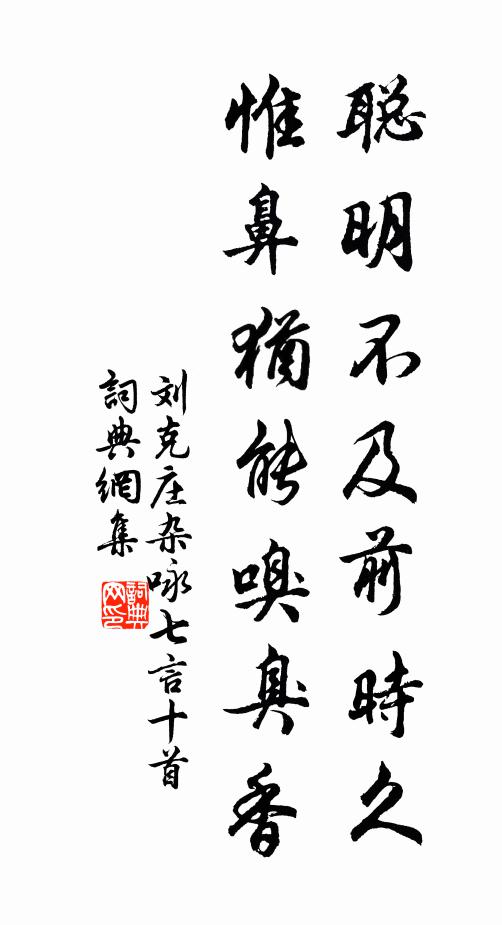 聪明不及前時久
惟鼻猶能嗅臭香
刘克庄杂咏七言十首
詞典網集
詞典网印